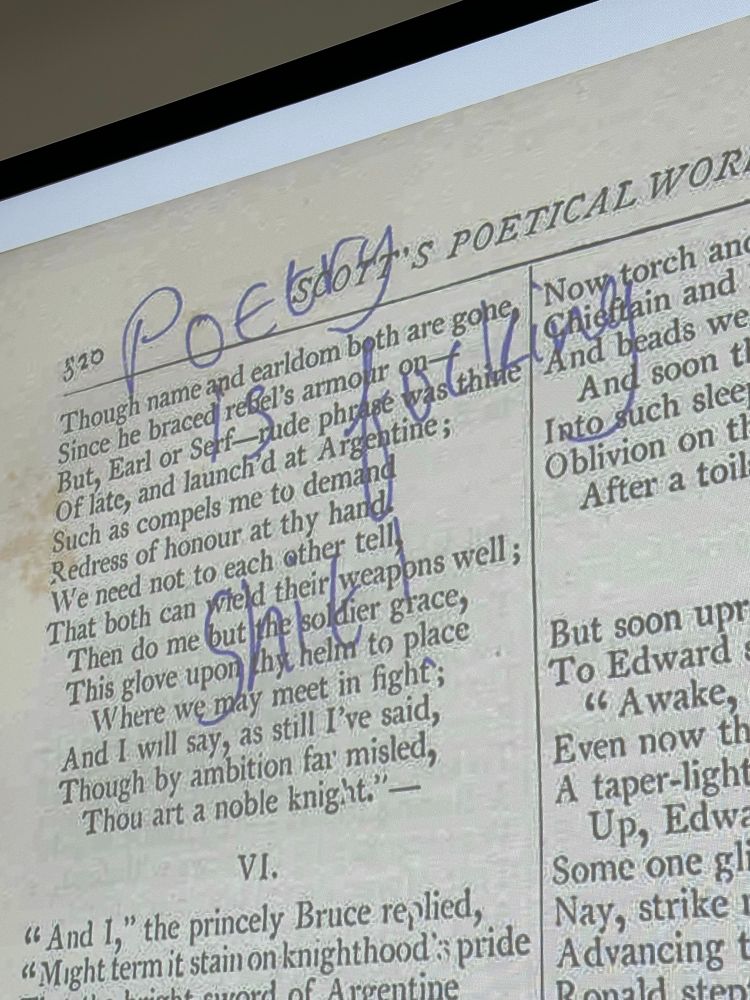 520
SCOTT'S POETICAL WOR
Poetry
is
fucking
shit
Though name and earldom both are gone,
Since he braced rebel's armour on—
But, Earl or Serf—rude phrase was thine
Of late, and launch'd at Argentine;
Such as compels me to demand
Redress of honour at thy hand.
We need not to each other tell,
That both can wield their weapons well;
Then do me but the soldier grace,
This glove upon thy helm to place
Where we may meet in fight;
And I will say, as still I've said,
Though by ambition far misled,
Thou art a noble knight."—
VI.
"And I," the princely Bruce replied,
"Might term it stain on knighthood's pride
bright sword of Argentine
Now torch and
Chieftain and
And beads we
And soon th
Into such slee
Oblivion on th
After a toil
But soon upr
To Edward s
"Awake,
Even now th
A taper-light
Up, Edwa
Some one gli
Nay, strike n
Advancing t
Ronald step